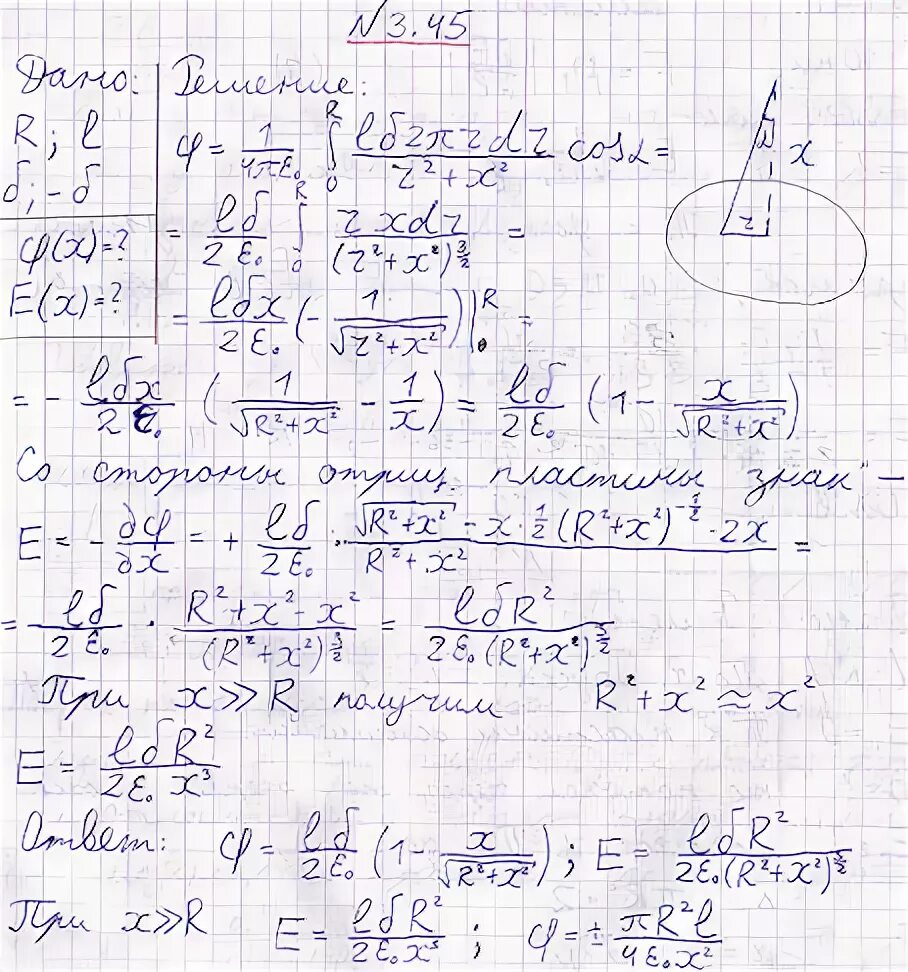 № 3.45
Дано:
R ; l
σ; -σ
φ(x)=?
E(x)=?
Решение:
φ = 1/(4πε₀) ∫₀ᴿ lσ2πr dr/(r² + x²) cosα =
= lσ/(2ε₀) ∫₀ᴿ r x dr/(r²+x²)^(3/2) =
= lσx/(2ε₀) (- 1/√(r²+x²))|₀ᴿ =
= - lσx/(2ε₀) (1/√(R²+x²) - 1/x) = lσ/(2ε₀) (1 - x/√(R²+x²))
x
r
Со стороны отриц. пластины знак "-
E = - ∂φ/∂x = + lσ/(2ε₀) · (√(R²+x²) - x·½(R²+x²)^(-½)·2x)/(R²+x²) =
= lσ/(2ε₀) · (R²+x²-x²)/(R²+x²)^(3/2) = lσR²/(2ε₀(R²+x²)^(3/2))
При x≫R получим R²+x² ≈ x²
E = lσR²/(2ε₀ x³)
Ответ: φ = lσ/(2ε₀) (1 - x/√(R²+x²)) ; E = lσR²/(2ε₀(R²+x²)^(3/2))
При x≫R E = lσR²/(2ε₀x³) ; φ = ± πR²l/(4ε₀x²)